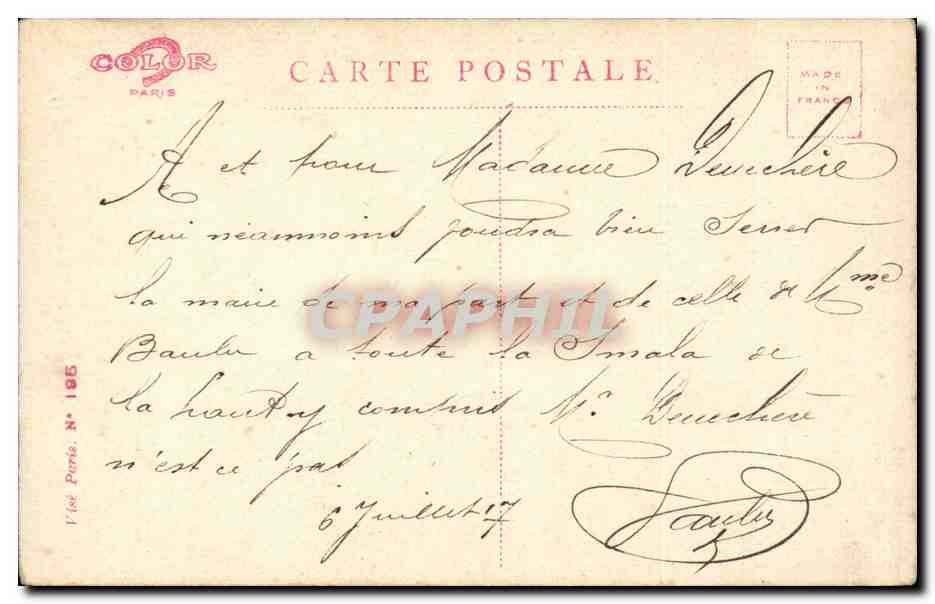 COLOR
PARIS
CARTE POSTALE
MADE
IN
FRANCE
A et pour Madame Deuchère
qui néanmoins voudra bien serrer
la main de ma part et de celle de Mme
Baulu a toute la Smala de
la haut y compris Mr Deuchère
n'est ce pas
6 Juillet 17
Baulu
Visé Paris. N° 195
CPAPHIL